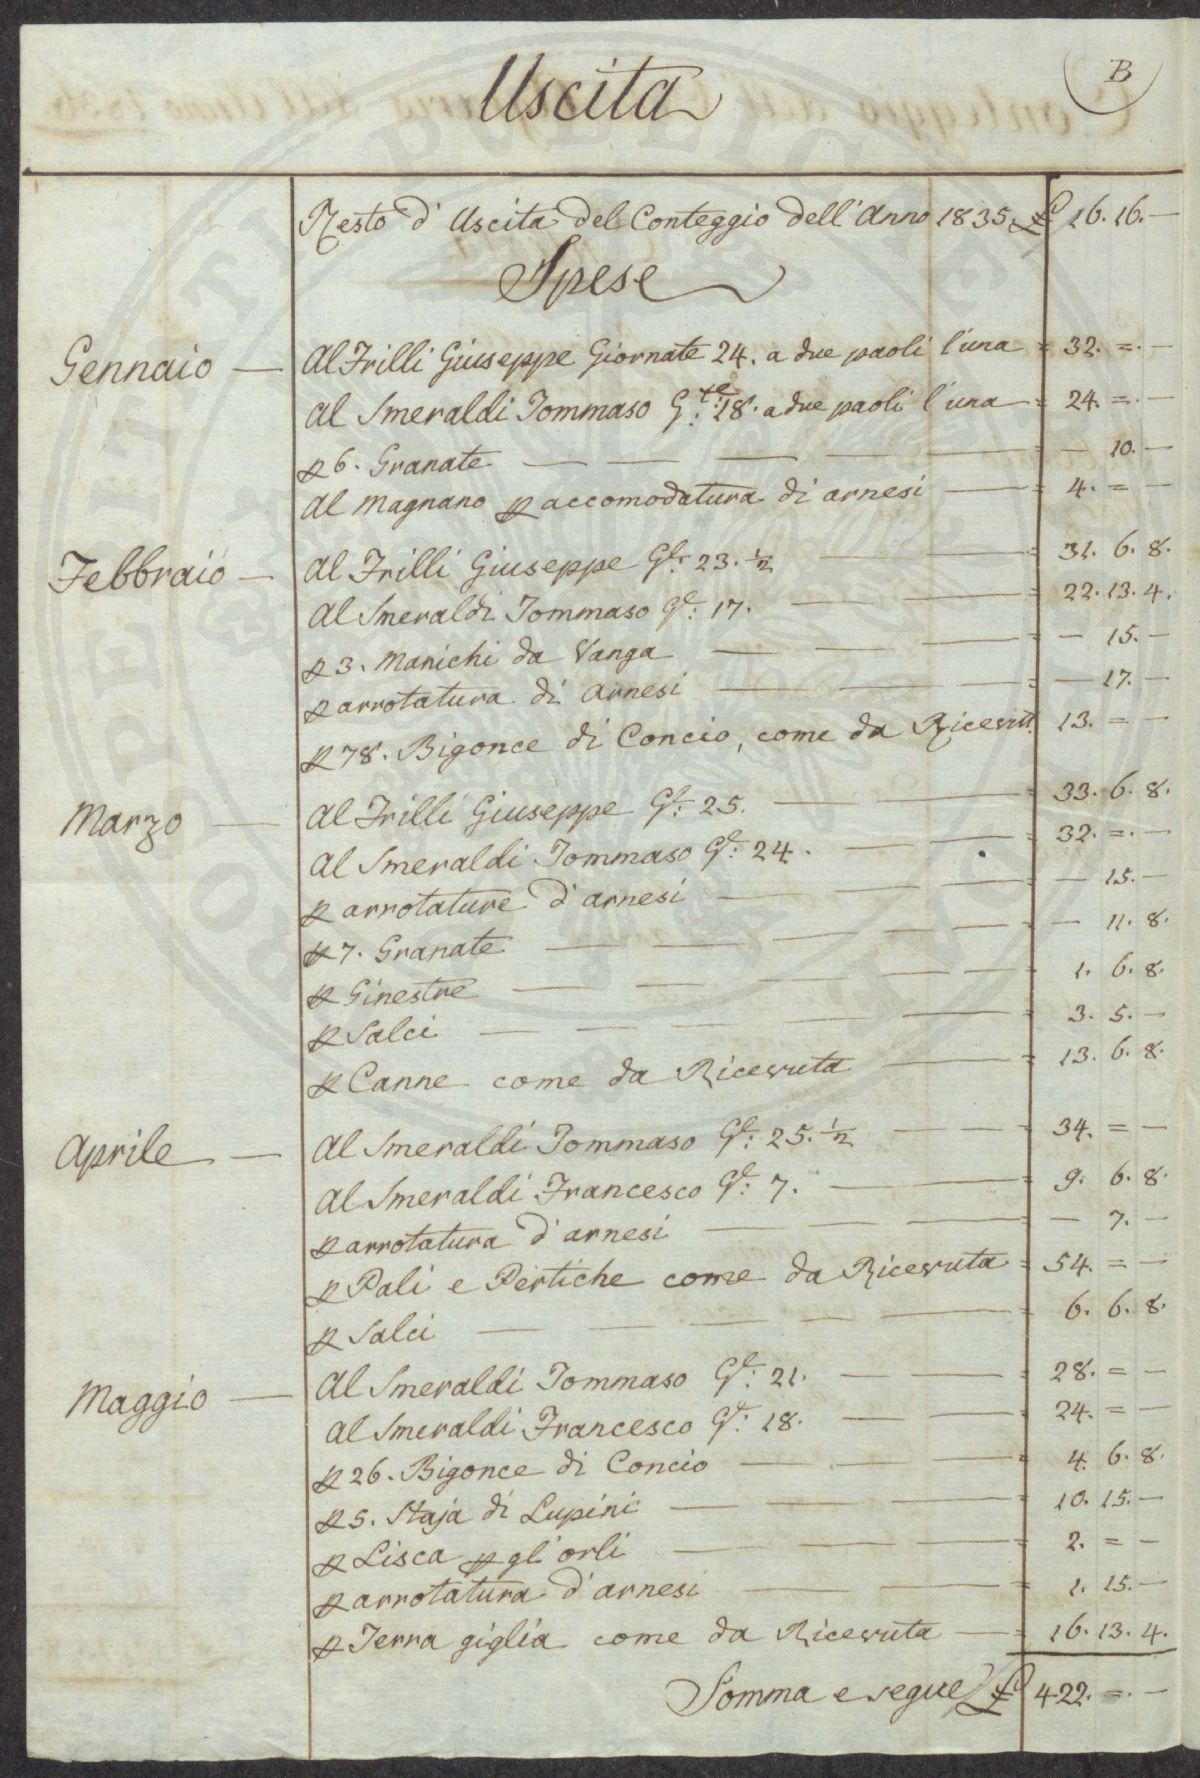 B
Uscita
Resto d'Uscita del Conteggio dell'Anno 1835. £ 16. 16. —
Spese
Gennaio — Al Frilli Giuseppe Giornate 24. a due paoli l'una = 32. =. —
Al Smeraldi Tommaso G.te 18. a due paoli l'una = 24. =. —
p 6. Granate — — — — = — 10. —
Al Magnano p accomodatura di arnesi — = 4. = —
Febbraio — Al Frilli Giuseppe Gte: 23. ½ — — = 31. 6. 8.
Al Smeraldi Tommaso Gte: 17. — — = 22. 13. 4.
p 3. Manichi da Vanga — — — = — 15. —
p arrotatura di arnesi — — — = — 17. —
p 78. Bigonce di Concio, come da Ricevut. 13. = —
Marzo — Al Frilli Giuseppe Gte: 25. — — = 33. 6. 8.
Al Smeraldi Tommaso Gte: 24. — — = 32. =. —
p arrotature d'arnesi — — — = — 15. —
p 7. Granate — — — — — = — 11. 8.
p Ginestre — — — — — = 1. 6. 8.
p Salci — — — — — = 3. 5. —
p Canne come da Ricevuta — = 13. 6. 8.
Aprile — Al Smeraldi Tommaso Gte: 25. ½ — — = 34. = —
Al Smeraldi Francesco Gte: 7. — — = 9. 6. 8.
p arrotatura d'arnesi — — — = — 7. —
p Pali e Pertiche come da Ricevuta = 54. = —
p Salci — — — — — = 6. 6. 8.
Maggio — Al Smeraldi Tommaso Gte: 21. — — = 28. = —
Al Smeraldi Francesco Gte: 18. — — = 24. = —
p 26. Bigonce di Concio — — — = 4. 6. 8.
p 5. Staja di Lupini — — — = 10. 15. —
p Lisca p gli orli — — — = 2. = —
p arrotatura d'arnesi — — = 1. 15. —
p Terra giglia come da Ricevuta — = 16. 13. 4.
Somma e segue £ 422. =. —